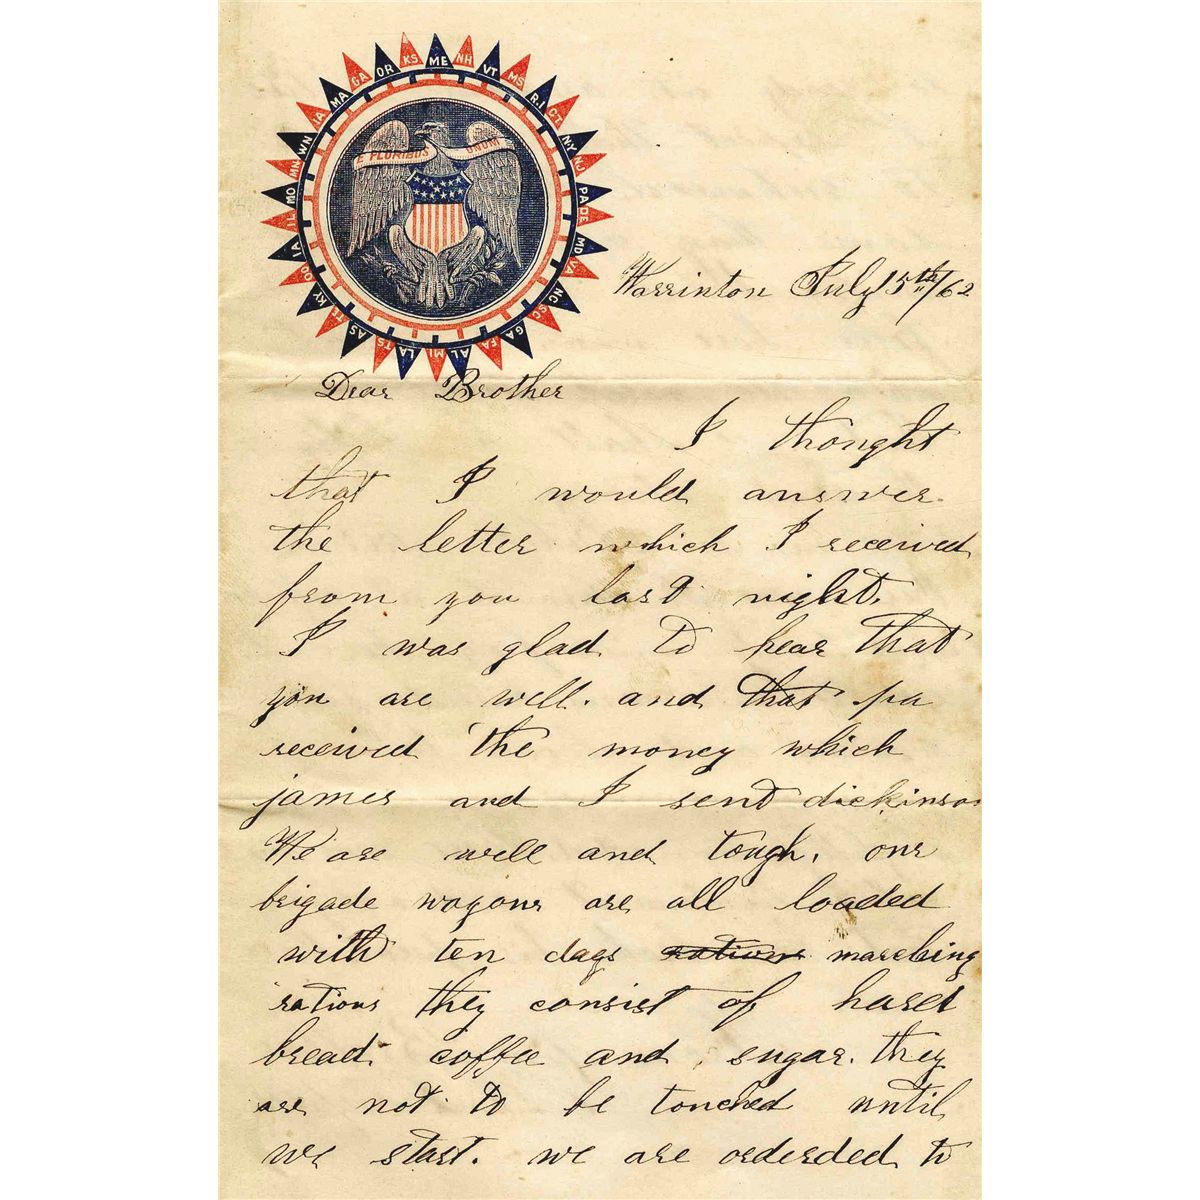 ME NH VT MS R.I CT. NY NJ PA DE MD VA NC SC GA FA AL MI LA TS AS TS KY OO IA IL MO MN WN IA MA GA OR KS
E PLURIBUS UNUM
Warrinton July 15th/62
Dear Brother
I thought
that I would answer
the letter which I received
from you last night.
I was glad to hear that
you are well. and that pa
received the money which
james and I sent dickinson
We are well and tough. our
brigade wagons are all loaded
with ten days rations marching
rations they consist of hard
bread coffee and sugar. they
are not to be touched until
we start. we are orderded to